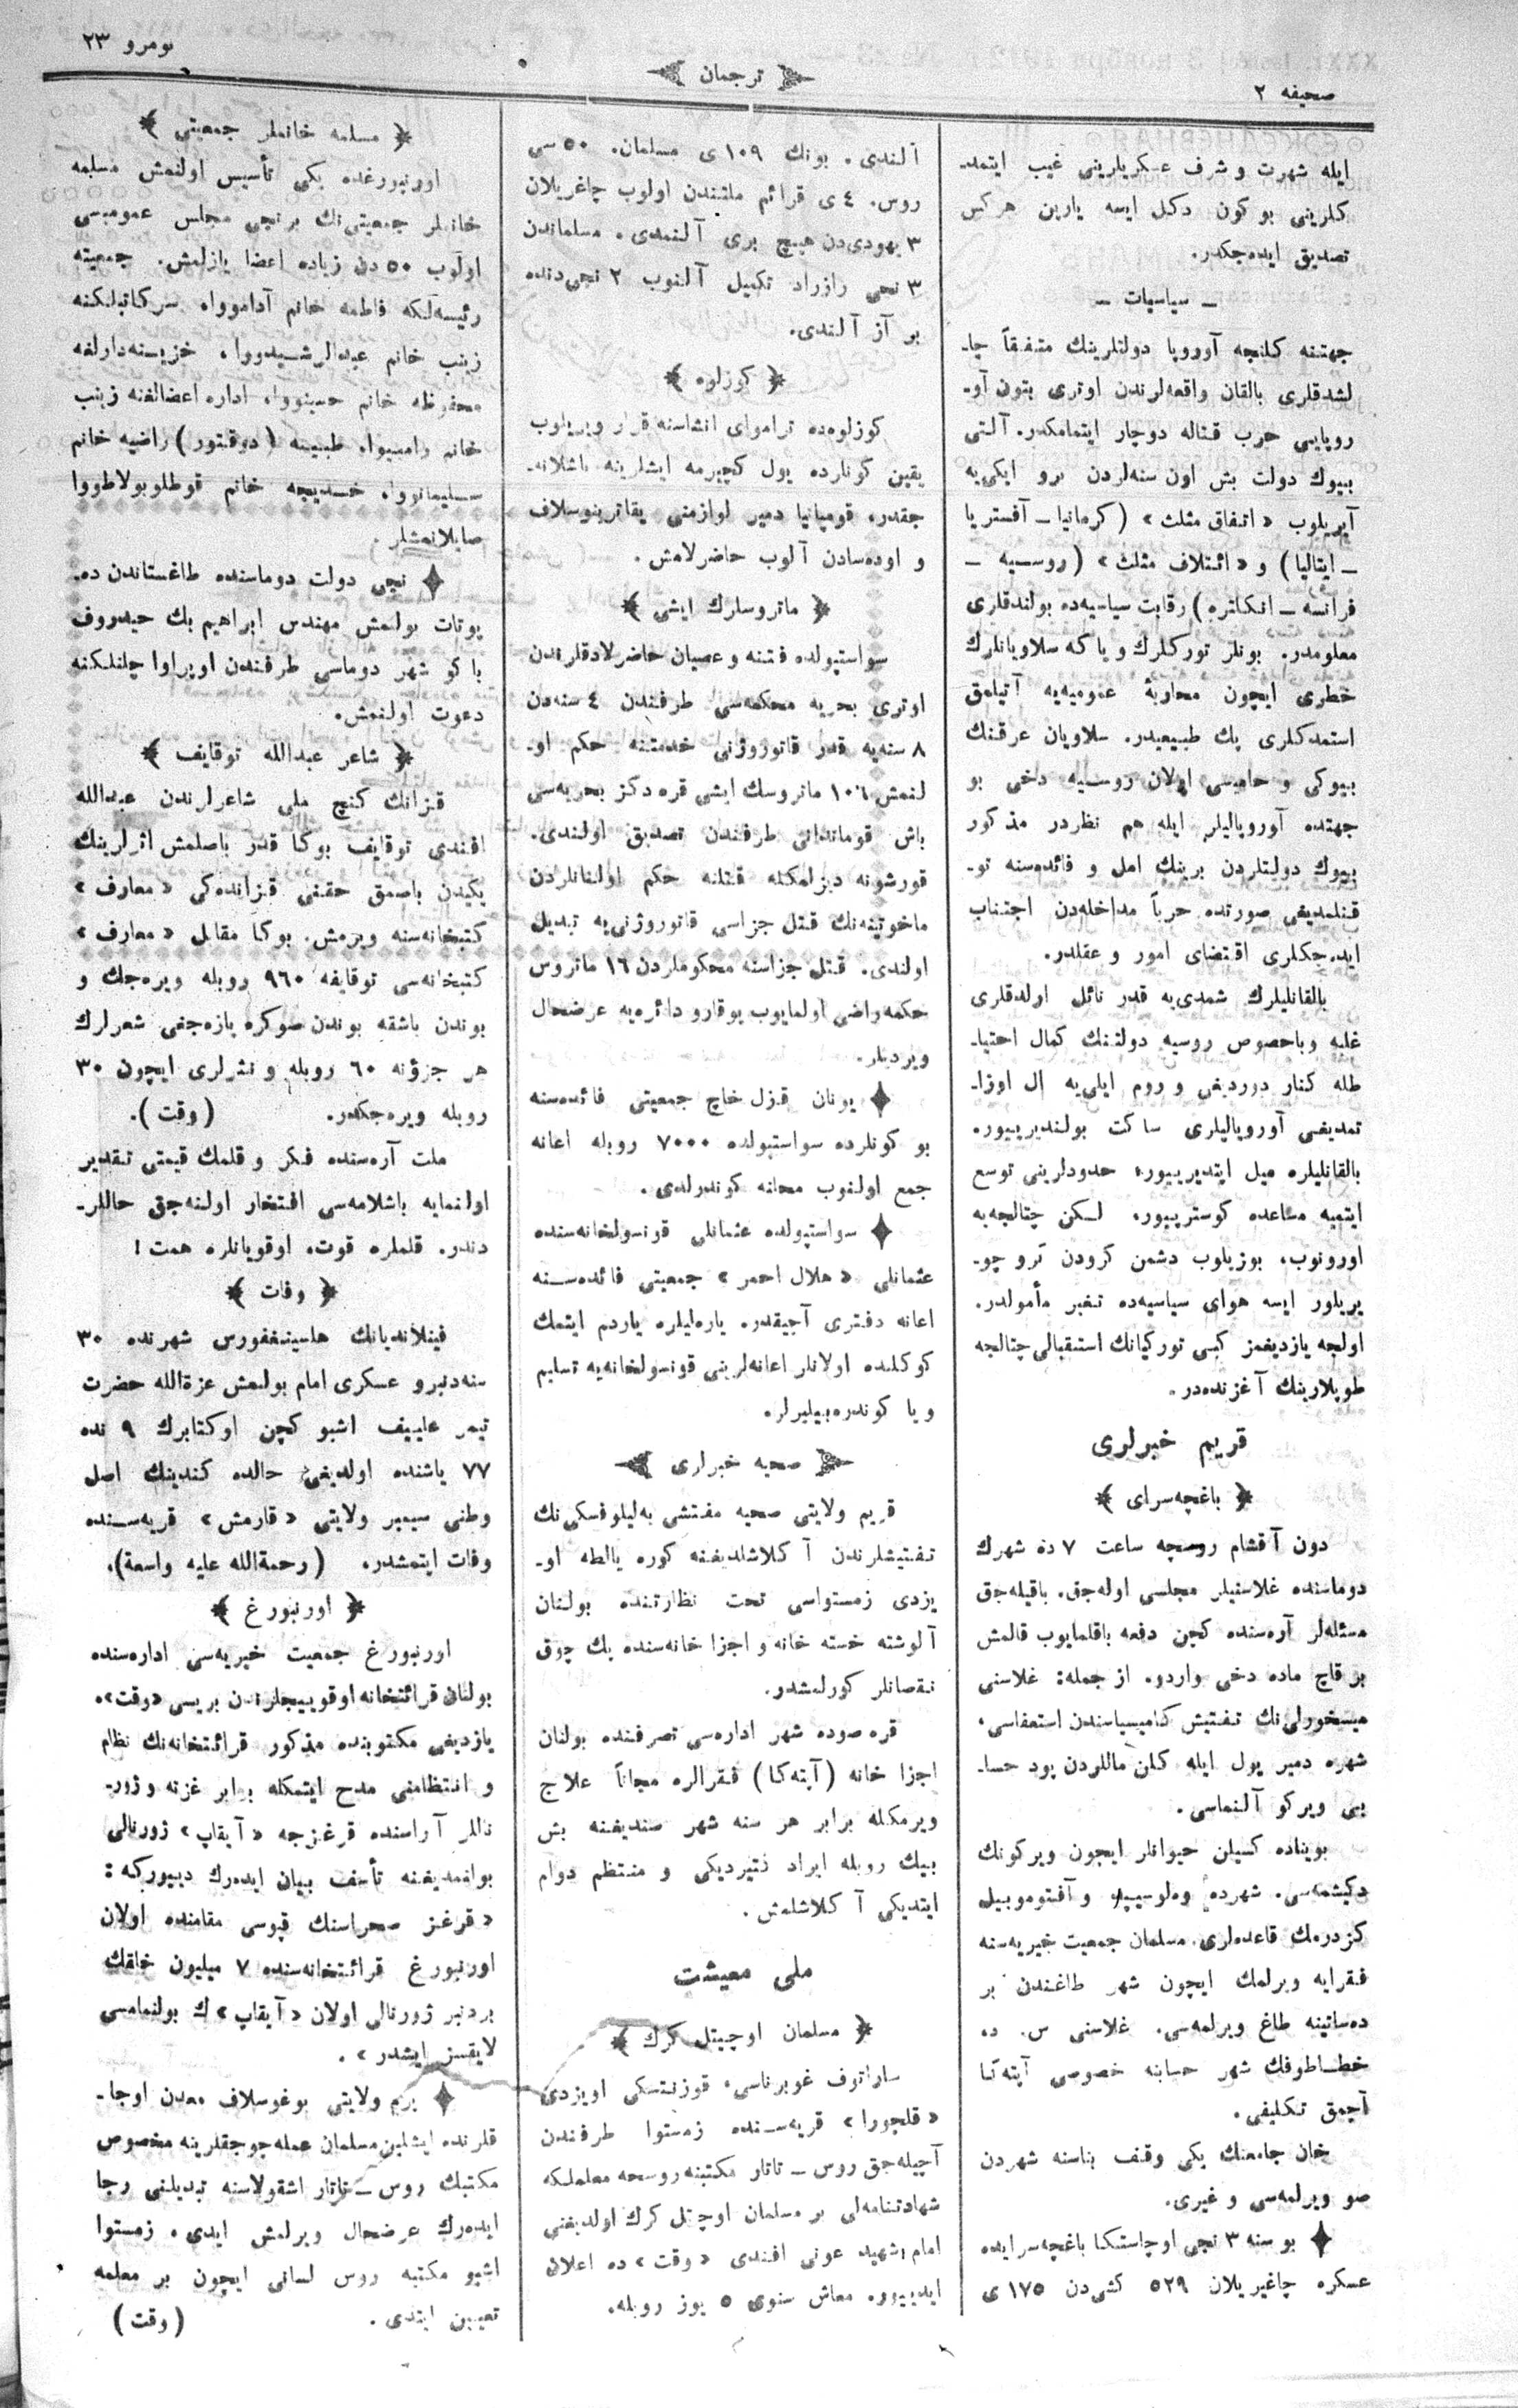 صحیفه ٢
ترجمان
نومرو ٢٣
ایله شهرت و شرف عسكریلرینی غیب ایتمد۔
كلرینی بو كون دكل ایسه یارین هركس
تصدیق ایده‌جكدر.
— سیاسیات —
جهتنه كلنجه آوروپا دولتلرینك متفقاً چا۔
لشدقلری بالقان واقعه‌لرندن اوتری بتون آو۔
روپایی حرب قتاله دوچار ایتمامكدر. آلتی
بیوك دولت بش اون سنه‌لردن برو ایكی‌یه
آیریلوب «اتفاق مثلث» (كرمانیا — آفستریا
— ایتالیا) و «ائتلاف مثلث» (روسیه —
فرانسه — انكلتره) رقابت سیاسیه‌ده بولندقلری
معلومدر. بونلر توركلرك و یا كه سلاویانلرك
خطری ایچون محاربهٔ عمومیه‌یه آتیلمق
استمدكلری پك طبیعیدر. سلاویان عرقنك
بیوكی و حامیسی اولان روسیه دخی بو
جهتده آوروپالیلر ایله هم نظردر مذكور
بیوك دولتلردن برینك امل و فائده‌سنه تو۔
قنلمدیغی صورتده حرباً مداخله‌دن اجتناب
ایده‌جكلری اقتضای امور و عقلدر.
بالقانلیلرك شمدی‌یه قدر نائل اولدقلری
غلبه وباخصوص روسیه دولتنك كمال احتیا۔
طله كنار دوردیغی و روم ایلی‌یه ال اوزا۔
تمدیغی آوروپالیلری ساكت بولندیرییور،
بالقانلیلره میل ایتدیرییور، حدودلرینی توسع
ایتمیه مساعده كوسترییور. لكن چتالجه‌یه
اورونوب، بوزیلوب دشمن كرودن كرو چو۔
یریلور ایسه هوای سیاسیه‌ده تغیر مأمولدر.
اولجه یازدیغمز كبی توركیانك استقبالی چتالجه
طوپلارینك آغزنده‌در.
قریم خبرلری
﴿ باغچه‌سرای ﴾
دون آقشام روسچه ساعت ٧ ده شهرك
دوماسنده غلاسنیلر مجلسی اوله‌جق. باقیله‌جق
مسئله‌لر آره‌سنده كچن دفعه باقلمایوب قالمش
بر قاچ ماده دخی واردو. از جمله: غلاسنی
میسخورلی‌نك تفتیش كامیسیاسندن استعفاسی،
شهره دمیر یول ایله كلن ماللردن پود حسا۔
بی ویركو آلنماسی.
بویناده كسیلن حیوانلر ایچون ویركونك
دكیشمه‌سی. شهرده وه‌لوسیپد و آفتوموبیل
كزدرمك قاعده‌لری. مسلمان جمعیت خیریه‌سنه
فقرایه ویرلمك ایچون شهر طاغندن بر
ده‌ساتینه طاغ ویرلمه‌سی. غلاسنی س. ده
خطاطوفك شهر حسابنه خصوصی آپته‌كا
آچمق تكلیفی.
خان جامعنك یكی وقف بناسنه شهردن
صو ویرلمه‌سی و غیری.
✦ بو سنه ٣ نجی اوچاستكا باغچه‌سرایده
عسكره چاغیریلان ٥٢٩ كشی‌دن ١٧٥ ی
آلندی. بونك ١٠٩ ی مسلمان. ٥٠ سی
روس. ٤ ی قرائم ملتندن اولوب چاغریلان
٣ یهودی‌دن هیچ بری آلنمدی. مسلماندن
٣ نجی رازراد تكمیل آلنوب ٢ نجی‌دنده
بر آز آلندی.
﴿ كوزلوه ﴾
كوزلوه‌ده تراموای انشاسنه قرار ویریلوب
یقین كونلرده یول كچیرمه ایشلرینه باشلانه۔
جقدر. قومپانیا دمیر لوازمنی یقاترینوسلاف
و اوده‌سادن آلوب حاضرلامش.
﴿ ماتروسلرك ایشی ﴾
سواستپولده فتنه و عصیان حاضرلادقلرندن
اوتری بحریه محكمه‌سی طرفندن ٤ سنه‌دن
٨ سنه‌یه قدر قاتوروژنی خدمتنه حكم او۔
لنمش ١٠٦ ماتروسك ایشی قره دكز بحریه‌سی
باش قوماندانی طرفندن تصدیق اولندی.
قورشونه دیزلمكله قتلنه حكم اولنانلردن
ماخوتینه‌نك قتل جزاسی قاتوروژنی‌یه تبدیل
اولندی. قتل جزاسنه محكوملردن ١٦ ماتروس
حكمه راضی اولمایوب یوقارو دائره‌یه عرضحال
ویردیلر.
✦ یونان قزل خاچ جمعیتی فائده‌سنه
بو كونلرده سواستپولده ٧٠٠٠ روبله اعانه
جمع اولنوب محلنه كوندرلدی.
✦ سواستپولده عثمانلی قونسولخانه‌سنده
عثمانلی «هلال احمر» جمعیتی فائده‌سنه
اعانه دفتری آچیقدر. یاره‌لیلره یاردم ایتمك
كوكلنده اولانلر اعانه‌لرینی قونسولخانه‌یه تسلیم
و یا كوندره‌بیلیرلر.
صحیه خبرلری
قریم ولایتی صحیه مفتشی به‌لیلوفسكی‌نك
تفتیشلرندن آكلاشلدیغنه كوره یالطه او۔
یزدی زمستواسی تحت نظارتنده بولنان
آلوشته خسته خانه و اجزا خانه‌سنده پك چوق
نقصانلر كورلمشدر.
قره صوده شهر اداره‌سی تصرفنده بولنان
اجزا خانه (آپته‌كا) فقرالره مجاناً علاج
ویرمكله برابر هر سنه شهر صندیغنه بش
بیك روبله ایراد كتیردیكی و منتظم دوام
ایتدیكی آكلاشلمش.
ملی معیشت
﴿ مسلمان اوچیتل كرك ﴾
ساراتوف غوبرناسی، قوزنتسكی اویزدی
«قلچورا» قریه‌سنده زمستوا طرفندن
آچیله‌جق روس — تاتار مكتبنه روسچه معلملكه
شهادتنامه‌لی بر مسلمان اوچتل كرك اولدیغنی
امام شهید عونی افندی «وقت» ده اعلان
ایدییور. معاش سنوی ٥ یوز روبله.
﴿ مسلمه خانملر جمعیتی ﴾
اورنبورغده یكی تأسیس اولنمش مسلمه
خانملر جمعیتی‌نك برنجی مجلس عمومیسی
اولوب ٥٠ دن زیاده اعضا یازلمش. جمعیته
رئیسه‌لكه فاطمه خانم آداموواء سركاتبلكنه
زینب خانم عبدالرشیدووا، خزینه‌دارلغه
محفوظه خانم حسینووا، اداره اعضالغنه زینب
خانم رامییوا، طبیبه (دوقتور) راضیه خانم
سلیمانووا، خدیجه خانم قوطلوبولاطووا
صایلانمشلر.
✦ نجی دولت دوماسنده طاغستاندن ده۔
پوتات بولنمش مهندس ابراهیم بك حیدروف
باكو شهر دوماسی طرفندن اوپراوا چلنلكنه
دعوت اولنمش.
﴿ شاعر عبدالله توقایف ﴾
قزانك كنچ ملی شاعرلرندن عبدالله
افندی توقایف بوكا قدر باصلمش اثرلرینك
یكیدن باصمق حقنی قزانده‌كی «معارف»
كتبخانه‌سنه ویرمش. بوكا مقابل «معارف»
كتبخانه‌سی توقایفه ٩٦٠ روبله ویره‌جك و
بوندن باشقه بوندن صوكره یازه‌جغی شعرلرك
هر جزؤنه ٦٠ روبله و نثرلری ایچون ٣٠
روبله ویره‌جكدر. (وقت).
ملت آره‌سنده فكر و قلمك قیمتی تقدیر
اولنمایه باشلامه‌سی افتخار اولنه‌جق حاللر۔
دندر. قلملره قوت، اوقویانلره همت!
﴿ وفات ﴾
فینلاندیانك هلسینغفورس شهرنده ٣٠
سنه‌دنبرو عسكری امام بولنمش عزةالله حضرت
تیمر علییف اشبو كچن اوكتابرك ٩ نده
٧٧ یاشنده اولدیغی حالده كندینك اصل
وطنی سیمبر ولایتی «قارمش» قریه‌سنده
وفات ایتمشدر. (رحمةالله علیه واسعة).
﴿ اورنبورغ ﴾
اورنبورغ جمعیت خیریه‌سی اداره‌سنده
بولنان قرائتخانه اوقوییجیلرندن بریسی «وقت»ه
یازدیغی مكتوبنده مذكور قرائتخانه‌نك نظام
و انتظامنی مدح ایتمكله برابر غزته و ژور۔
ناللر آراسنده قرغزجه «آیقاپ» ژورنالی
بولنمدیغنه تأسف بیان ایده‌رك دییوركه:
«قرغز صحراسنك قپوسی مقامنده اولان
اورنبورغ قرائتخانه‌سنده ٧ میلیون خلقك
بردنبر ژورنالی اولان «آیقاپ»ك بولنمامسی
لایقسز ایشدر».
✦ پرم ولایتی بوغوسلاف معدن اوجا۔
قلرنده ایشلین مسلمان عمله‌جوجقلرینه مخصوص
مكتبك روس — تاتار اشقولاسنه تبدیلنی رجا
ایده‌رك عرضحال ویرلمش ایدی. زمستوا
اشبو مكتبه روس لسانی ایچون بر معلمه
تعیین ایتدی. (وقت)